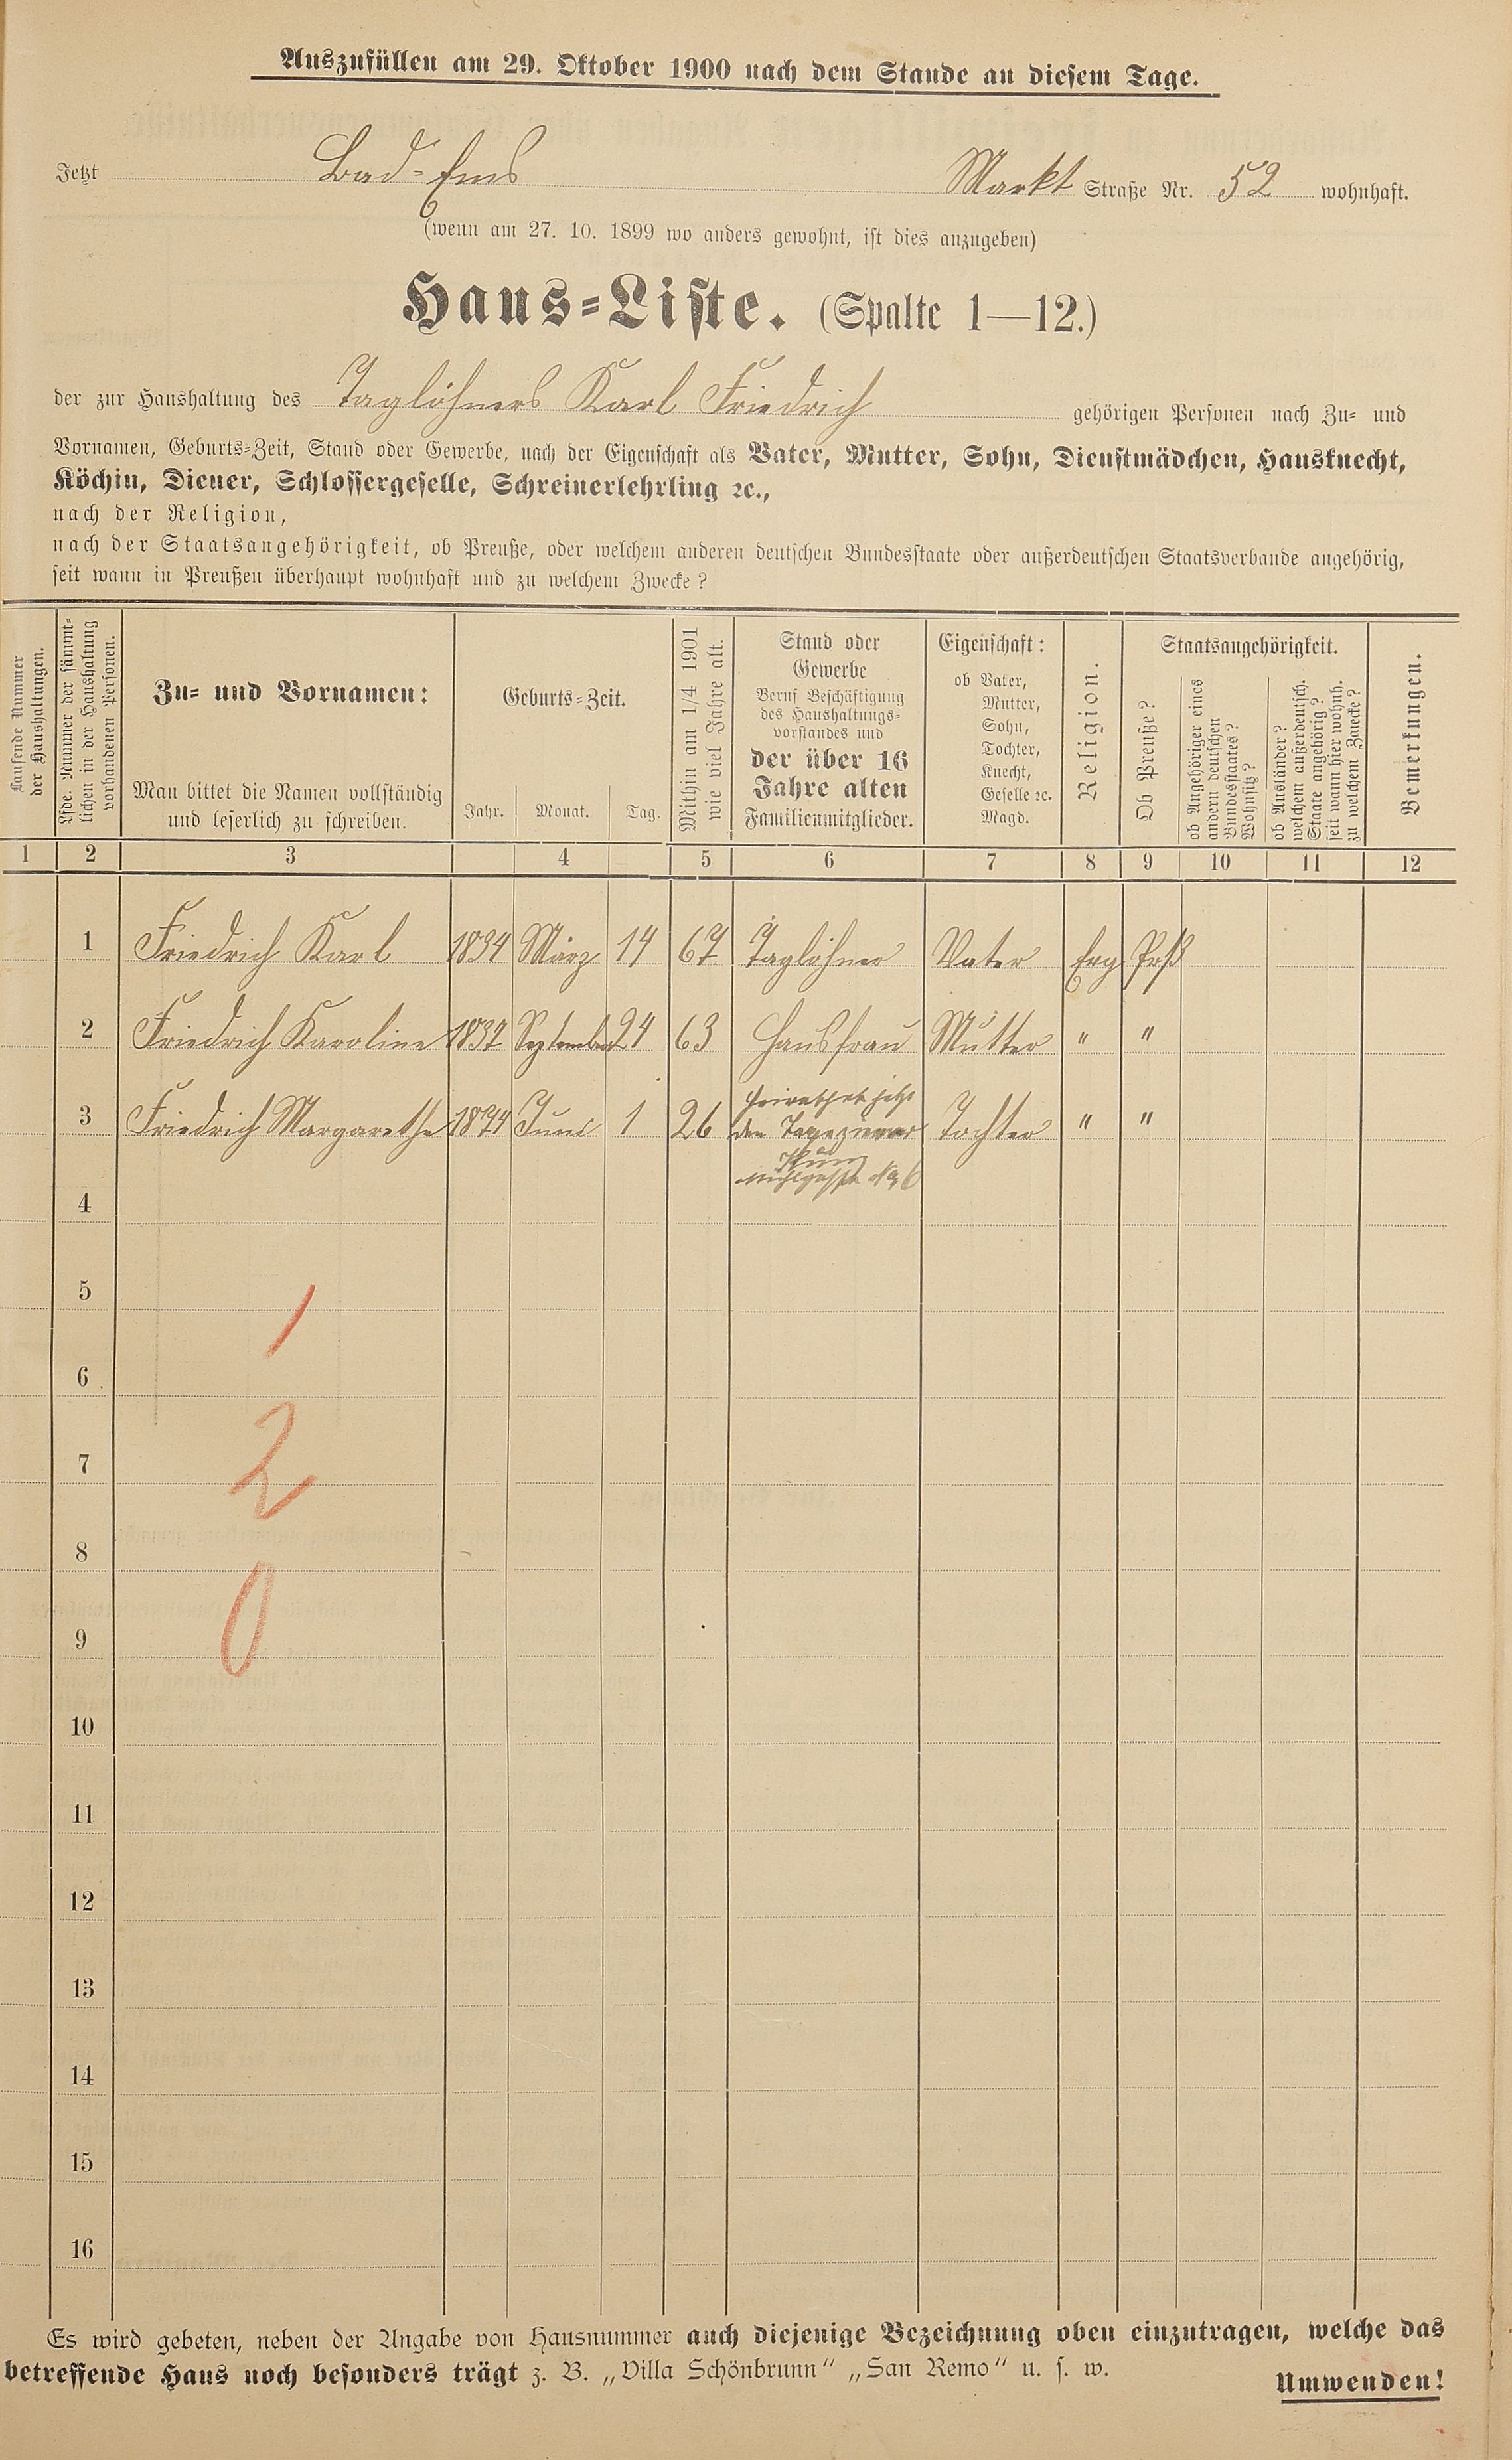 Auszufüllen am 29. Oktober 1900 nach dem Stande an diesem Tage.
Jetzt Bad-Ems Markt Straße Nr. 52 wohnhaft.
(wenn am 27. 10. 1899 wo anders gewohnt, ist dies anzugeben)
Haus-Liste. (Spalte 1—12.)
der zur Haushaltung des Taglöhners Karl Friedrich gehörigen Personen nach Zu- und
Vornamen, Geburts-Zeit, Stand oder Gewerbe, nach der Eigenschaft als Vater, Mutter, Sohn, Dienstmädchen, Hausknecht,
Köchin, Diener, Schlossergeselle, Schreinerlehrling ꝛc.,
nach der Religion,
nach der Staatsangehörigkeit, ob Preuße, oder welchem anderen deutschen Bundesstaate oder außerdeutschen Staatsverbande angehörig,
seit wann in Preußen überhaupt wohnhaft und zu welchem Zwecke?
Laufende Nummer
der Haushaltungen.
Lfde. Nummer der sämmt-
lichen in der Haushaltung
vorhandenen Personen.
Zu- und Vornamen:
Man bittet die Namen vollständig
und leserlich zu schreiben.
Geburts-Zeit.
Jahr. Monat. Tag.
Mithin am 1/4 1901
wie viel Jahre alt.
Stand oder
Gewerbe
Beruf Beschäftigung
des Haushaltungs-
vorstandes und
der über 16
Jahre alten
Familienmitglieder.
Eigenschaft:
ob Vater,
Mutter,
Sohn,
Tochter,
Knecht,
Geselle ꝛc.
Magd.
Religion.
Staatsangehörigkeit.
Ob Preuße?
ob Angehöriger eines
andern deutschen
Bundesstaates?
Wohnsitz?
ob Ausländer?
welchem außerdeutsch.
Staate angehörig?
seit wann hier wohnh.
zu welchem Zwecke?
Bemerkungen.
1 2 3 4 5 6 7 8 9 10 11 12
1 Friedrich Karl 1834 März 14 67 Taglöhner Vater Evg Prß
2 Friedrich Karoline 1837 September 24 63 Hausfrau Mutter " "
3 Friedrich Margarethe 1874 Juni 1 26 Tochter " "
4
5
1
6
2
7
8
0
9
10
11
12
13
14
15
16
Es wird gebeten, neben der Angabe von Hausnummer auch diejenige Bezeichnung oben einzutragen, welche das
betreffende Haus noch besonders trägt z. B. „Villa Schönbrunn“ „San Remo“ u. s. w.
Umwenden!